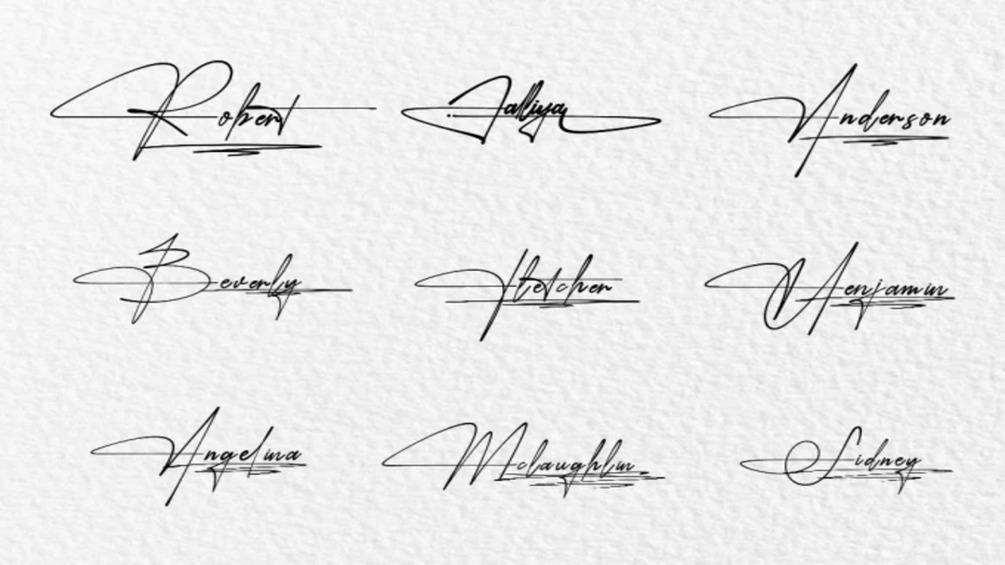 Robert Jalliya Anderson
Beverly Fletcher Henjamin
Angelina Mclaughlin Sidney